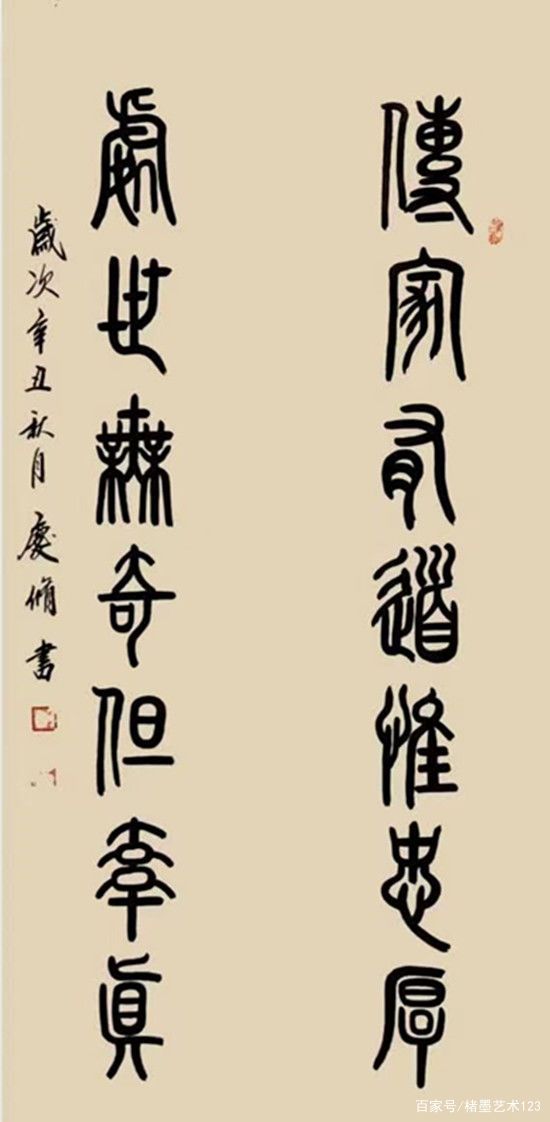 傳家有道惟忠厚
處世無奇但率真
歲次辛丑秋月慶脩書
百家号/楮墨艺术123